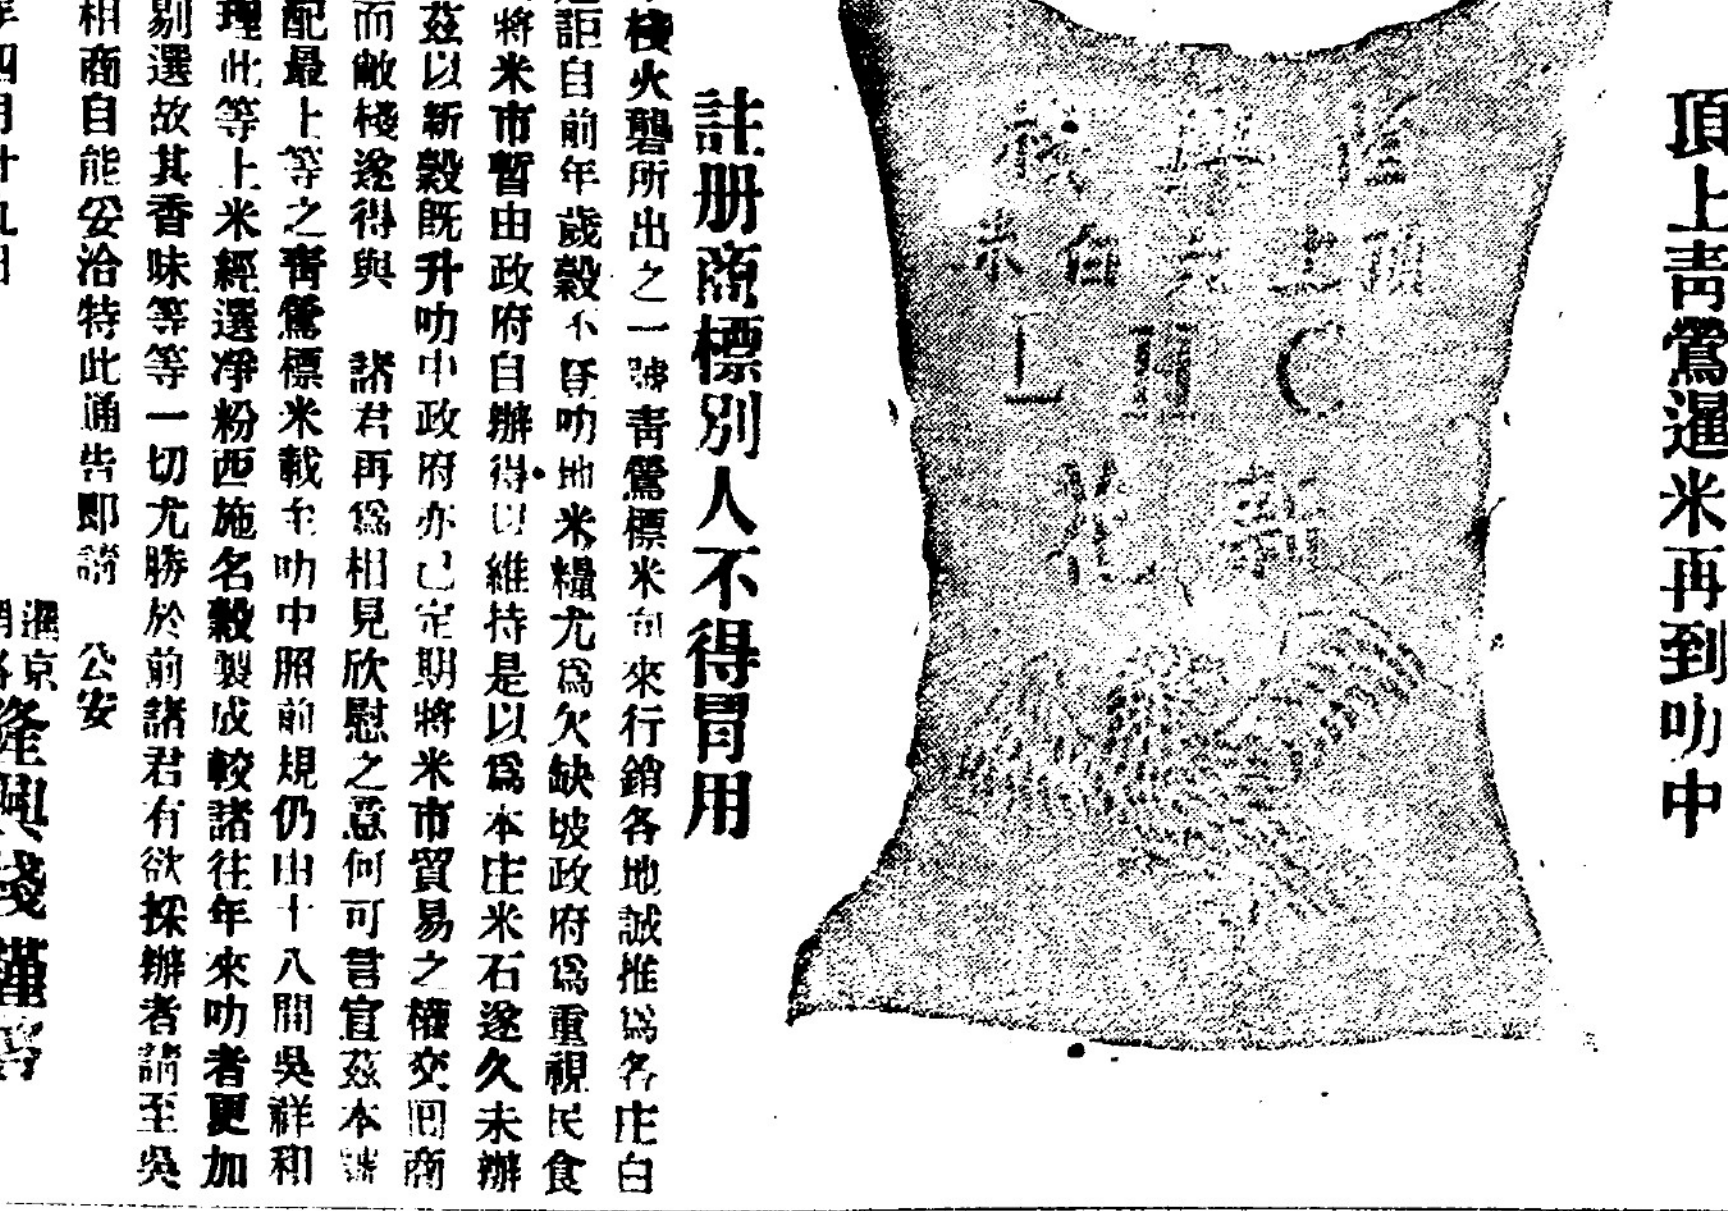 頂上青鶯暹米再到叻中
隆興棧
頂上大白米
C H L
註册商標別人不得冒用
棧火礱所出之一號青鶯標米向來行銷各地誠推爲各庄白
詎自前年歲穀不登叻地米糧尤爲欠缺坡政府爲重視民食
將米市暫由政府自辦得以維持是以爲本庄米石遂久未辦
茲以新穀旣升叻中政府亦已定期將米市貿易之權交囘商
而敝棧遂得與 諸君再爲相見欣慰之意何可言宣茲本號
配最上等之靑鶯標米載至叻中照前規仍由十八間吳祥和
理此等上米經選凈粉西施名穀製成較諸往年來叻者更加
剔選故其香味等等一切尤勝於前諸君有欲採辦者請至吳
相商自能妥洽特此通告卽請 公安
四月廿九日
暹京
隆興棧謹啓